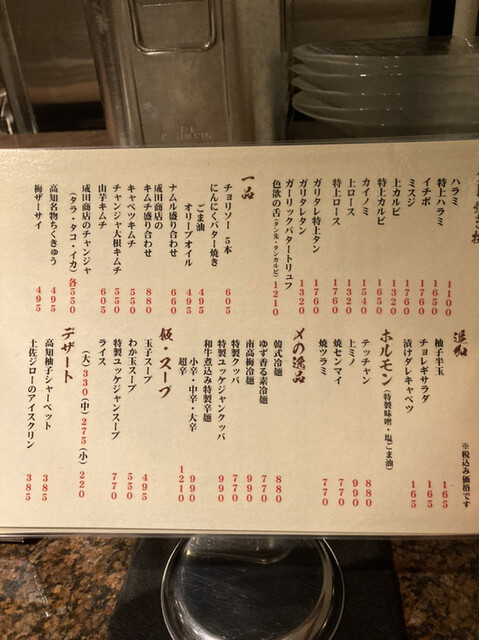 ハラミ 1100
特上ハラミ 1760
イチボ 1650
ミスジ 1760
上カルビ 1320
特上カルビ 1650
カイノミ 1540
上ロース 1320
特上ロース 1760
ガリタレ特上タン 1760
ガリタレタン 1320
ガーリックバタートリュフ
色欲の舌(タン先・タンカルビ) 1210
一品
チョリソー 5本 605
にんにくバター焼き
ごま油 495
オリーブオイル 495
ナムル盛り合わせ 660
成田商店の
キムチ盛り合わせ 880
キャベツキムチ 550
チャンジャ大根キムチ 550
山芋キムチ 605
成田商店のチャンジャ
(タラ・タコ・イカ) 各550
高知名物ちくきゅう 495
梅ザーサイ 495
追加
※税込み価格です
柚子半玉 165
チョレギサラダ 165
漬けダレキャベツ 165
ホルモン(特製味噌・塩ごま油)
テッチャン 880
上ミノ 990
焼センマイ 770
焼ツラミ 770
〆の逸品
韓式冷麺 880
ゆず香る素冷麺 770
南高梅冷麺 990
特製クッパ 770
特製ユッケジャンクッパ 990
和牛煮込み特製辛麺
小辛・中辛・大辛 990
超辛 1210
飯・スープ
玉子スープ 495
わか玉スープ 550
特製ユッケジャンスープ 770
ライス
(大)330(中)275(小)220
デザート
高知柚子シャーベット 385
土佐ジローのアイスクリン 385